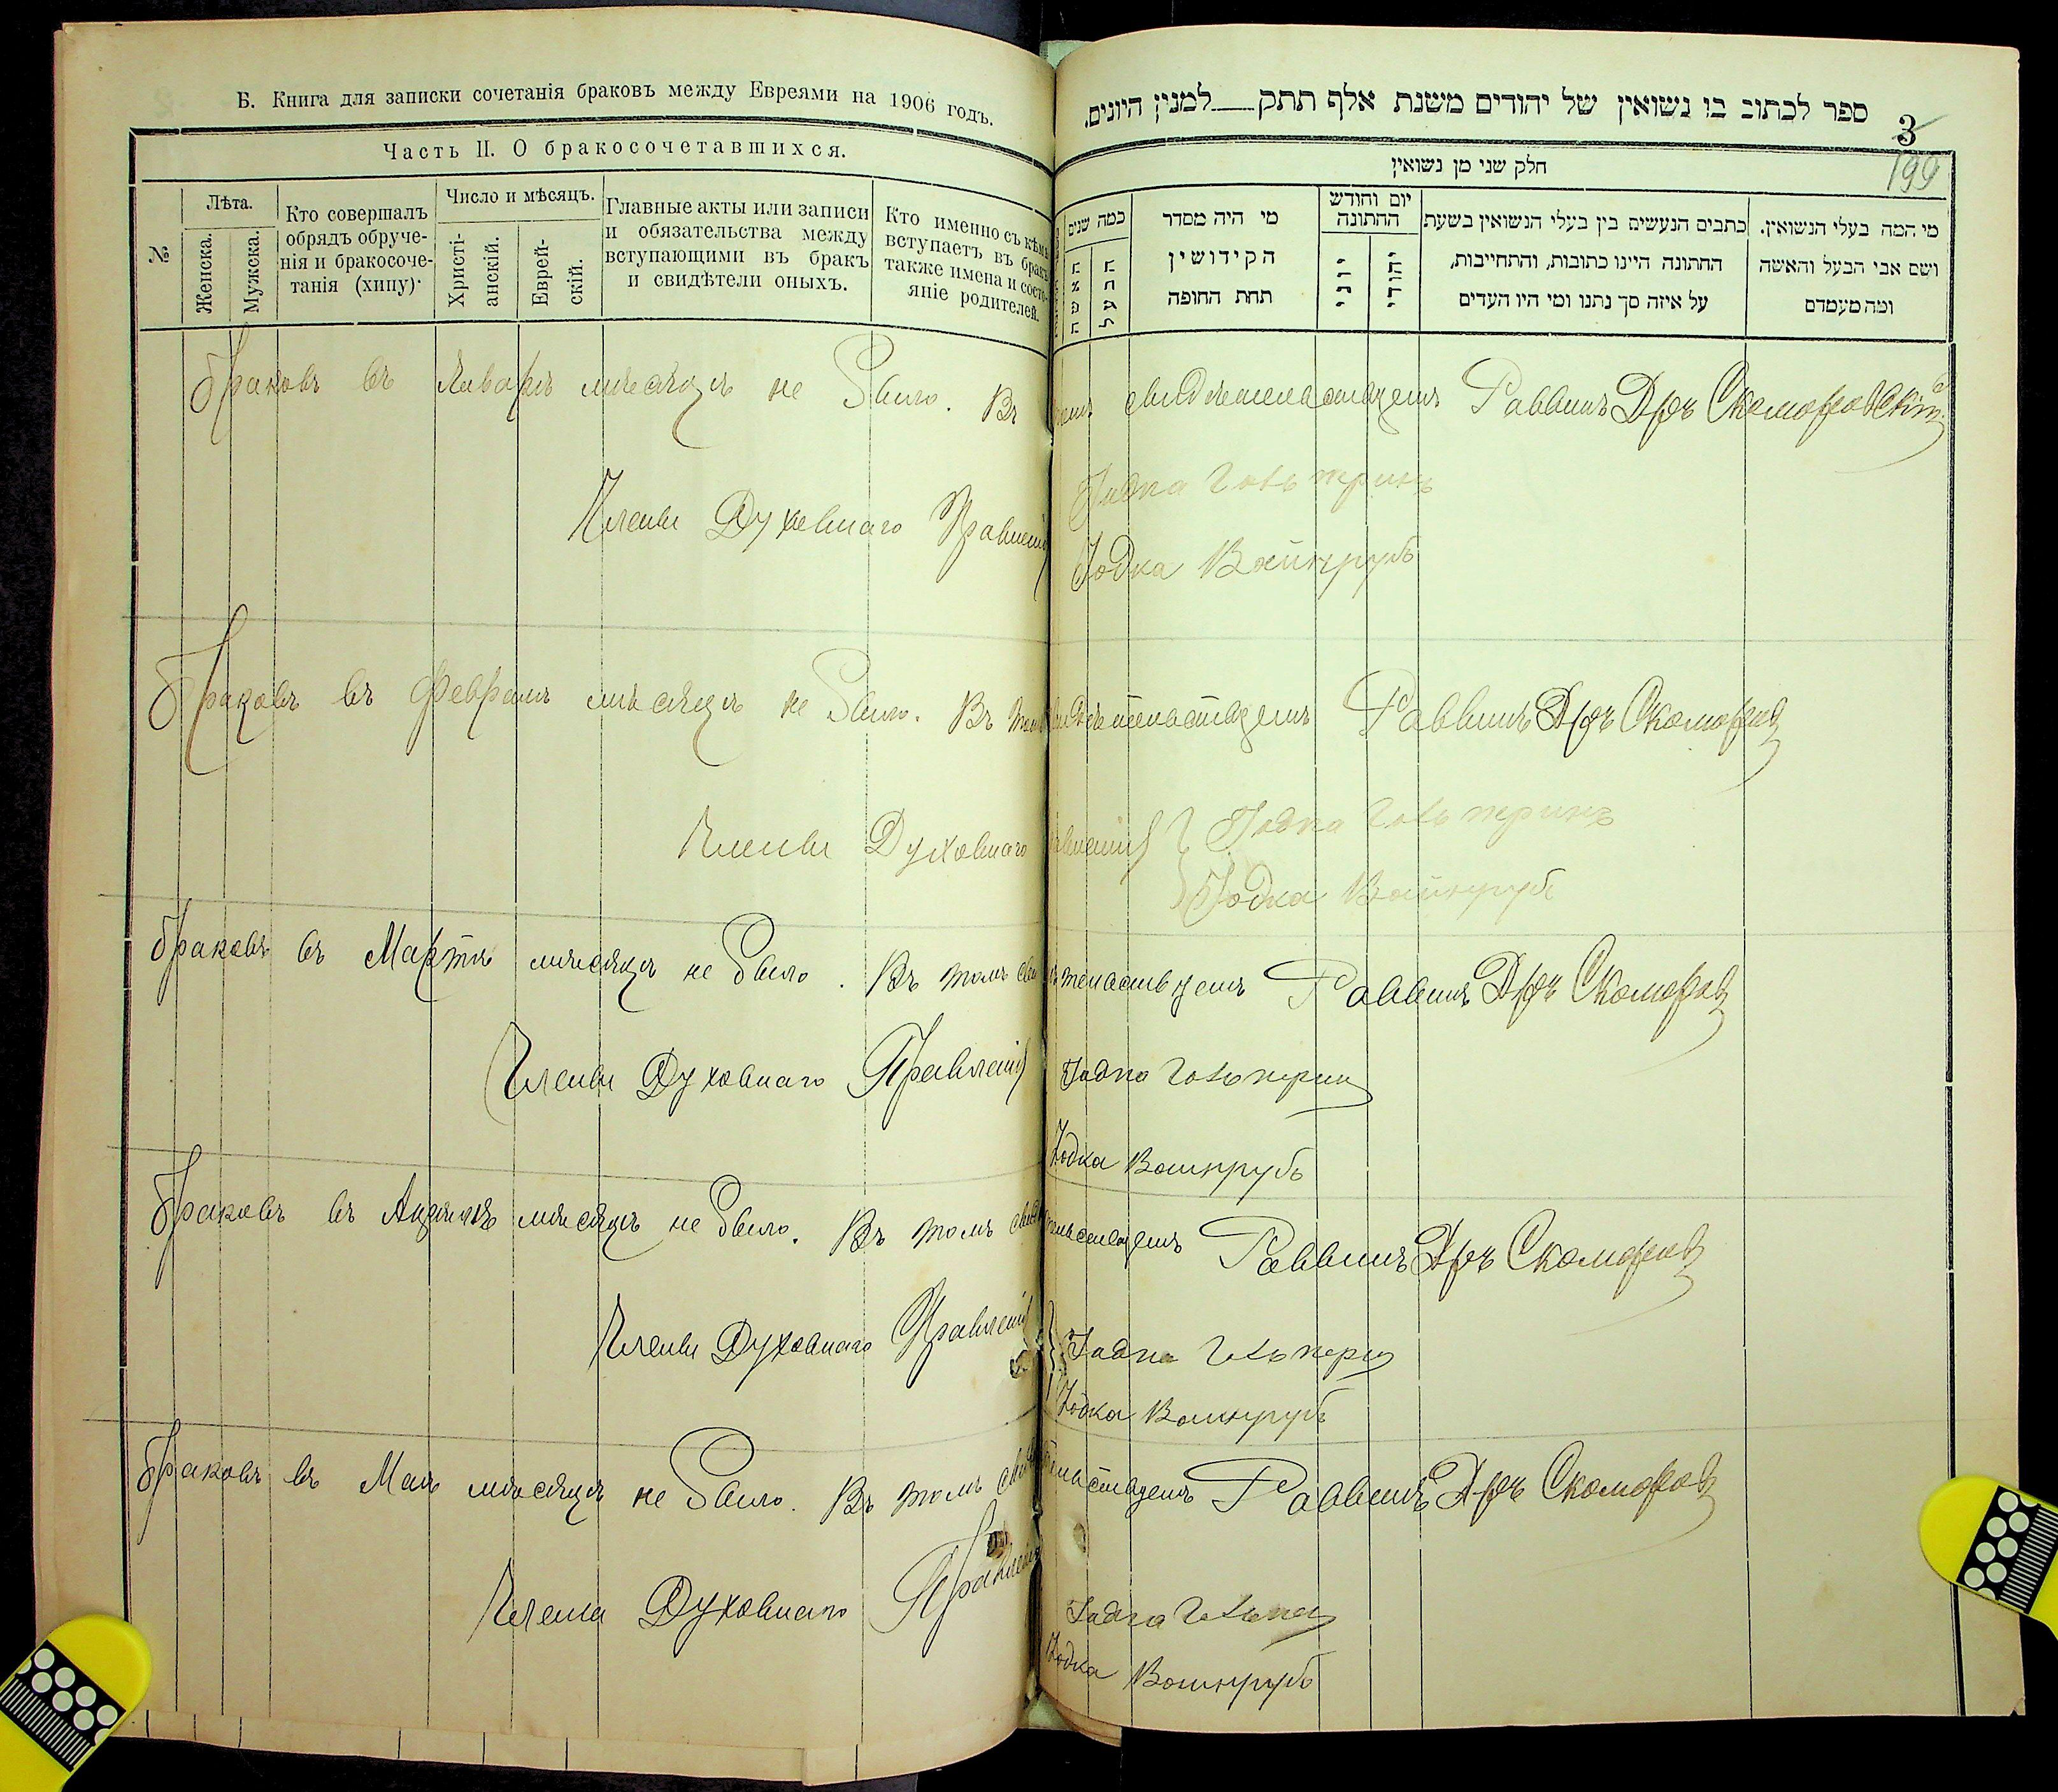 Б. Книга для записки сочетанія браковъ между Евреями на 1906 годъ.
Часть II. О бракосочетавшихся.
№
Лѣта.
Женска.
Мужска.
Кто совершалъ
обрядъ обруче-
нія и бракосоче-
танія (хипу).
Число и мѣсяцъ.
Христі-
анскій.
Еврей-
скій.
Главные акты или записи
и обязательства между
вступающими въ бракъ
и свидѣтели оныхъ.
Кто именно съ кѣмъ
вступаетъ въ бракъ
также имена и состо-
яніе родителей.
ספר לכתוב בו נשואין של יהודים משנת אלף תתק למנין היונים.
3
199
חלק שני מן נשואין
כמה שנים
האשה
הבעל
מי היה מסדר
הקידושין
תחת החופה
יום וחודש
החתונה
יוני
יהודי
כתבים הנעשים בין בעלי הנשואין בשעת
החתונה היינו כתובות, והתחייבות,
על איזה סך נתנו ומי היו העדים
מי המה בעלי הנשואין.
ושם אבי הבעל והאשה
ומה מעמדם
Браковъ въ Январѣ мѣсяцѣ не было. Въ томъ свидѣтельствуемъ Раввинъ Д-ръ Скоморовскій
Члены Духовнаго Правленія
Іодка Вайнрубъ
Браковъ въ Февралѣ мѣсяцѣ не было. Въ томъ свидѣтельствуемъ Раввинъ Д-ръ Скоморов
Члены Духовнаго Правленія
Іодка Вайнрубъ
Браковъ въ Мартѣ мѣсяцѣ не было. Въ томъ свидѣтельствуемъ Раввинъ Д-ръ Скоморов
Члены Духовнаго Правленія
Іодка Вайнрубъ
Браковъ въ Апрѣлѣ мѣсяцѣ не было. Въ томъ свидѣтельствуемъ Раввинъ Д-ръ Скоморов
Члены Духовнаго Правленія
Іодка Вайнрубъ
Браковъ въ Маѣ мѣсяцѣ не было. Въ томъ свидѣтельствуемъ Раввинъ Д-ръ Скоморов
Члены Духовнаго Правленія
Іодка Вайнрубъ